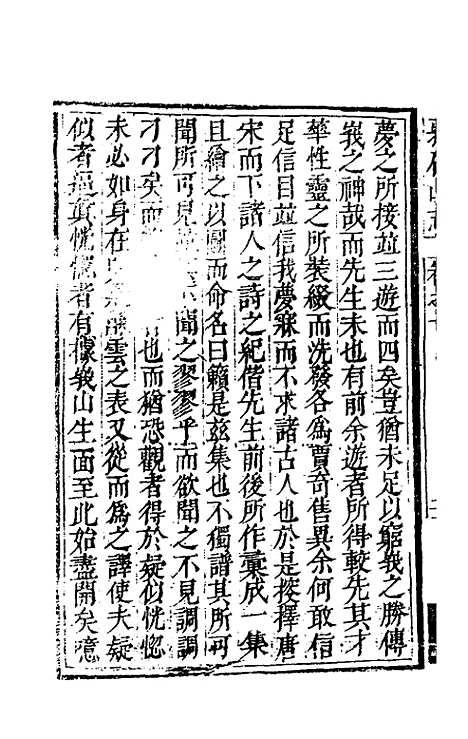 夢之所接並三遊而四矣豈猶未足以窮峩之勝傳
峩之神哉而先生未也有前余遊者所得較先其才
華性靈之所裝綴而洗發各為賈奇售異余何敢信
足信目並信我夢寐而不求諸古人也於是按擇唐
宋而下諸人之詩之紀偕先生前後所作彙成一集
且繪之以圖而命名曰籟是茲集也不獨譜其所可
聞所可見 不聞之翏翏乎而欲聞之不見調調
刁刁矣而 也而猶恐觀者得於疑似恍惚
未必如身在 雲之表又從而為之譯使夫疑
似者逼真恍惚者有據峩山生面至此始盡開矣噫